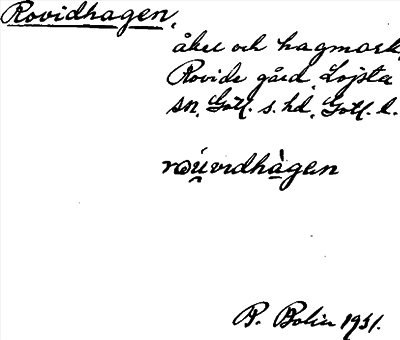 Rovidhagen,
åker och hagmark,
Rovide gård, Lojsta
sn, Gotl. s. hd, Gotl. l.
rωúvidhàgen
P. Bolin 1931.